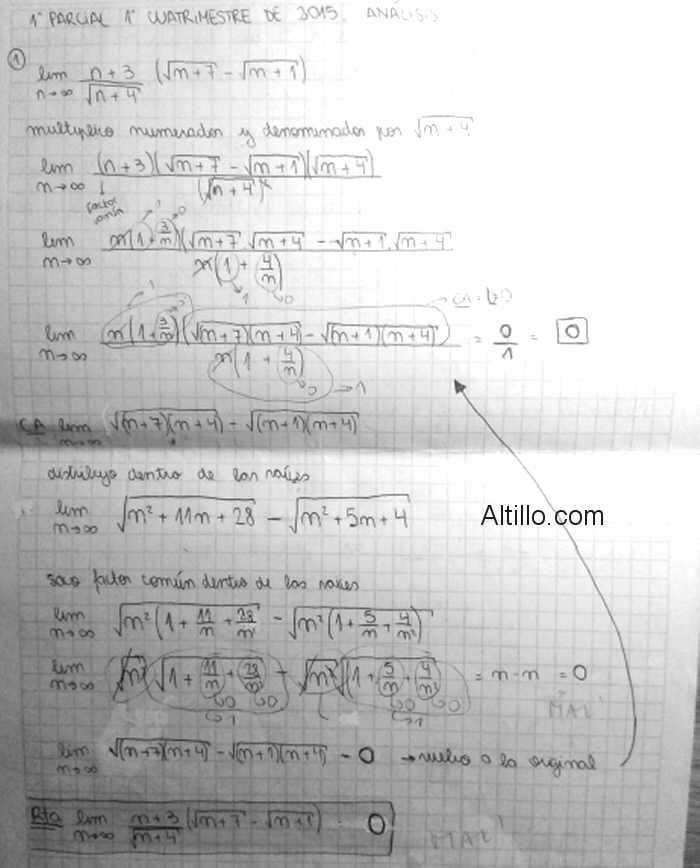 1° PARCIAL 1° CUATRIMESTRE DE 3015. ANALISIS
① lim n→∞ n+3/√n+4 (√n+7 - √n+1)
multiplico numerador y denominador por √n+4
lim n→∞ (n+3)(√n+7 - √n+1)(√n+4)/(√n+4)²
factor común
lim n→∞ n(1+3/n)(√n+7 . √n+4 - √n+1 . √n+4/n(1+4/n)
1 0
1 0
lim n→∞ n(1+3/n)(√(n+7)(n+4) - √(n+1)(n+4))/n(1+4/n) = 0/1 = 0
→ CA = 0
0 → 1
CA lim n→∞ √(n+7)(n+4) - √(n+1)(n+4)
distribuyo dentro de las raíces
lim n→∞ √n²+11n+28 - √n²+5n+4
Altillo.com
saco factor común dentro de las raíces
lim n→∞ √n²(1+11/n+28/n²) - √n²(1+5/n+4/n²)
lim n→∞ √n² √1+11/n+28/n² - √n² √(1+5/n+4/n²) = n-n = 0
0 0 0 0
1 1
MAL
lim n→∞ √(n+7)(n+4) - √(n+1)(n+4) = 0 → vuelvo a la original
Rta lim n→∞ n+3/√n+4 (√n+7 - √n+1) = 0
MAL